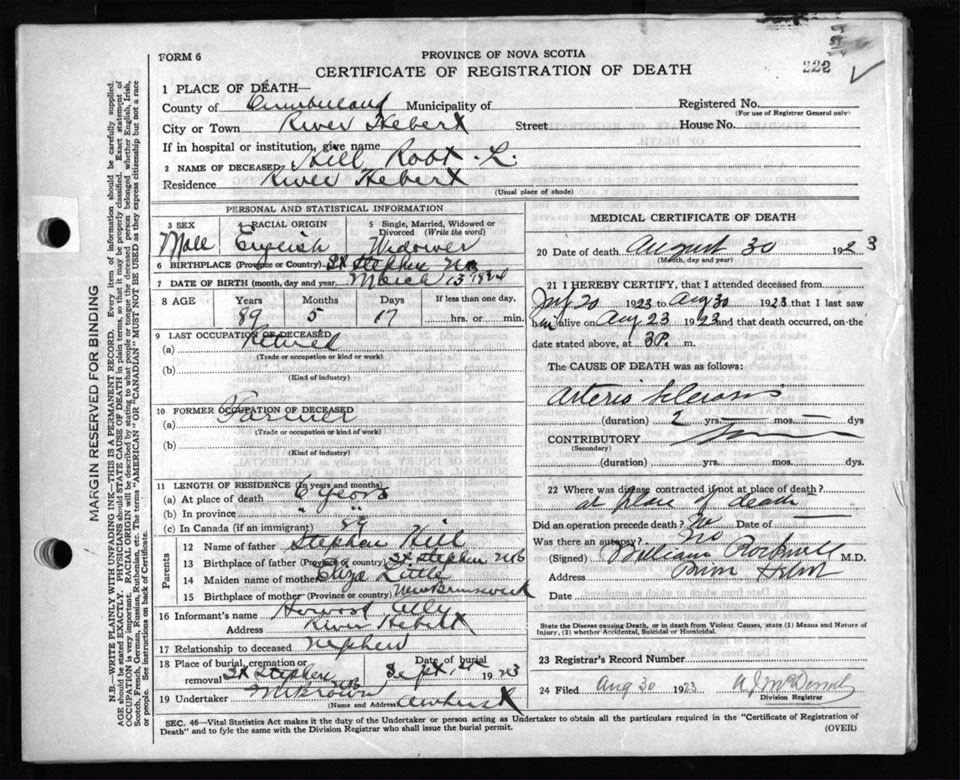 FORM 6
PROVINCE OF NOVA SCOTIA
CERTIFICATE OF REGISTRATION OF DEATH
222
1 PLACE OF DEATH—
County of Cumberland Municipality of
Registered No.
(For use of Registrar General only)
City or Town River Hebert Street House No.
If in hospital or institution, give name
2 NAME OF DECEASED: Hill Robt. L.
Residence River Hebert
(Usual place of abode)
PERSONAL AND STATISTICAL INFORMATION
3 SEX
Male
4 RACIAL ORIGIN
English
5 Single, Married, Widowed or Divorced (Write the word)
Widower
6 BIRTHPLACE (Province or Country) St Stephen N B
7 DATE OF BIRTH (month, day and year) March 13
8 AGE Years Months Days If less than one day,
89 5 17 hrs. or min.
9 LAST OCCUPATION OF DECEASED
(a) Retired
(Trade or occupation or kind of work)
(b)
(Kind of industry)
10 FORMER OCCUPATION OF DECEASED
(a) Farmer
(Trade or occupation or kind of work)
(b)
(Kind of industry)
11 LENGTH OF RESIDENCE (In years and months)
(a) At place of death 6 years
(b) In province " "
(c) In Canada (if an immigrant) 89
Parents
12 Name of father Stephen Hill
13 Birthplace of father (Province or country) St Stephen N B
14 Maiden name of mother Eliza Little
15 Birthplace of mother (Province or country) New Brunswick
16 Informant's name
Address River Hebert
17 Relationship to deceased nephew
18 Place of burial, cremation or removal St Stephen N B
Date of burial Sept. 1923
19 Undertaker
(Name and Address) Amherst
MEDICAL CERTIFICATE OF DEATH
20 Date of death August 30 1923
(Month, day and year)
21 I HEREBY CERTIFY, that I attended deceased from
20 1923 to Aug 30 1923 that I last saw
him alive on Aug 23 1923 and that death occurred, on the
date stated above, at 3 P. m.
The CAUSE OF DEATH was as follows:
Arterio Sclerosis
(duration) 2 yrs. — mos. — dys
CONTRIBUTORY
(Secondary)
(duration) yrs. mos. dys.
22 Where was disease contracted if not at place of death?
at place of death
Did an operation precede death? No Date of —
Was there an autopsy? No
(Signed) William Rockwell M.D.
Address River Hebert
Date
State the Disease causing Death, or in death from Violent Causes, state (1) Means and Nature of Injury, (2) whether Accidental, Suicidal or Homicidal.
23 Registrar's Record Number
24 Filed Aug 30 1923 A J McDermid
Division Registrar
SEC. 46—Vital Statistics Act makes it the duty of the Undertaker or person acting as Undertaker to obtain all the particulars required in the "Certificate of Registration of
Death" and to fyle the same with the Division Registrar who shall issue the burial permit.
(OVER)
MARGIN RESERVED FOR BINDING
N.B.—WRITE PLAINLY WITH UNFADING INK—THIS IS A PERMANENT RECORD. Every item of information should be carefully supplied.
AGE should be stated EXACTLY. PHYSICIANS should STATE CAUSE OF DEATH in plain terms, so that it may be properly classified. Exact statement of
OCCUPATION is very important. RACIAL ORIGIN will be described by stating to what people or tongue the deceased person belonged whether English, Irish,
Scotch, French, German, Russian, Ruthenian, etc. The terms "AMERICAN" OR "CANADIAN" MUST NOT BE USED as they express citizenship but not a race
or people. See instructions on back of Certificate.